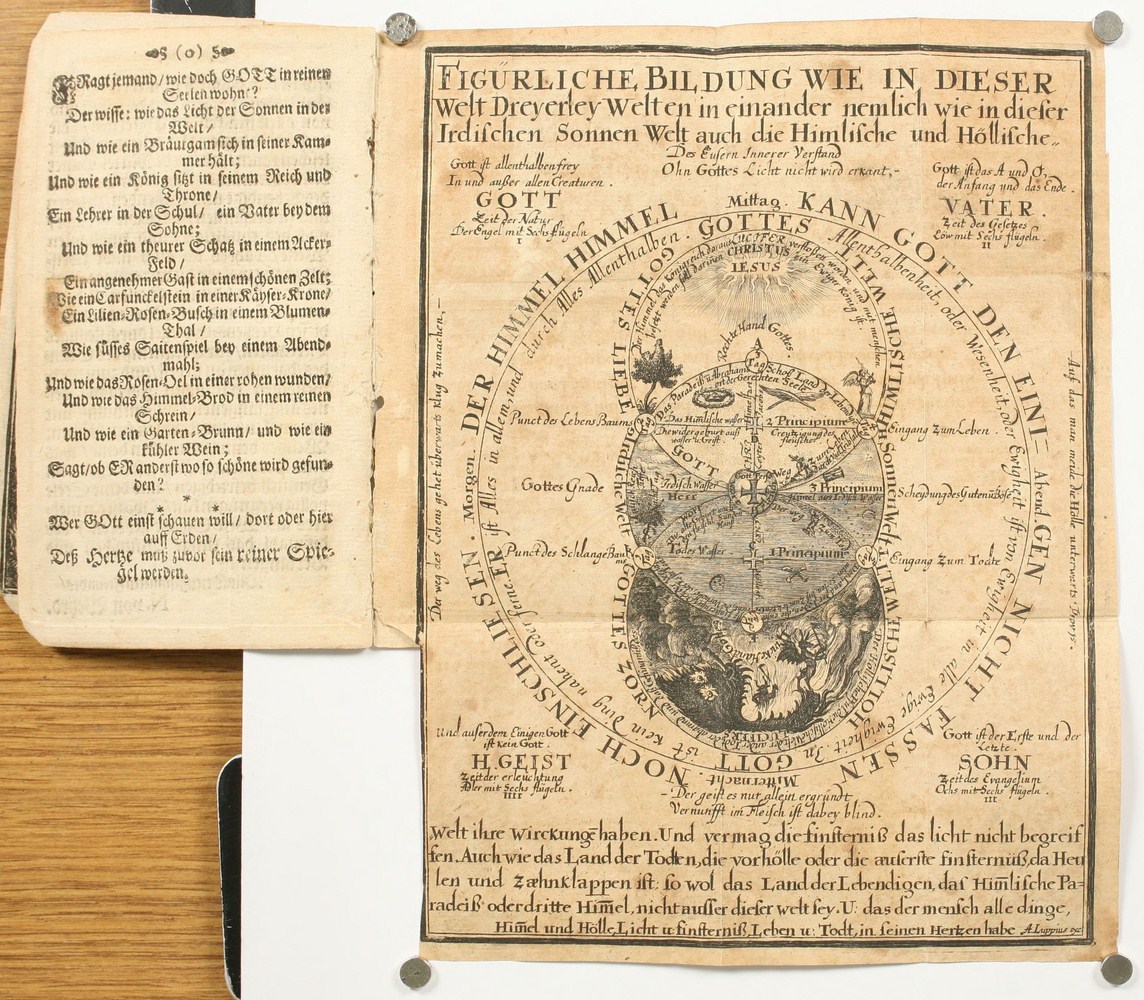 (0)
FRagt jemand / wie doch GOTT in reinen
Seelen wohn'?
Der wisse: wie das Licht der Sonnen in der
Welt /
Und wie ein Bräutgam sich in seiner Kam-
mer hält;
Und wie ein König sitzt in seinem Reich und
Throne /
Ein Lehrer in der Schul / ein Vater bey dem
Sohne;
Und wie ein theurer Schatz in einem Acker-
Feld /
Ein angenehmer Gast in einem schönen Zelt;
Wie ein Carfunckelstein in einer Käyser-Krone /
Ein Lilien-Rosen-Busch in einem Blumen-
Thal /
Wie süsses Saitenspiel bey einem Abend-
mahl;
Und wie das Rosen-Oel in einer rohen wunden /
Und wie das Himmel-Brod in einem reinen
Schrein /
Und wie ein Garten-Brunn / und wie ein
kühler Wein;
Sagt / ob ER anderst wo so schöne wird gefun-
den?
* * *
Wer GOtt einst schauen will / dort oder hier
auff Erden /
Deß Hertze muß zuvor sein reiner Spie-
gel werden.
FIGÜRLICHE BILDUNG WIE IN DIESER
Welt Dreyerley Welten in einander nemlich wie in dieser
Irdischen Sonnen Welt auch die Himlische und Höllische
Des Eusern Innerer Verstand
Ohn Gottes Licht nicht wird erkant,-
Gott ist allenthalben frey
In und außer allen Creaturen.
GOTT
Zeit der Natur
Der Engel mit Sechs flügeln
I
Gott ist das A und O,
der Anfang und das Ende.
VATER.
Zeit des Gesetzes
Löw mit Sechs flügeln
II
DER HIMMEL HIMMEL KANN GOTT DEN EINI-
GEN NICHT FASSEN NOCH EINSCHLIESEN.
Mittag.
Abend
Mitternacht
Morgen.
ER ist Alles in allem, und durch Alles Allenthalben.
GOTTES Allenthalbenheit, oder Wesenheit, oder Ewigheit ist von Ewigheit in alle Ewige Ewigheit. In GOTT ist kein Ding nahent oder ferne.
Der weg des Lebens gehet überwarts klug zumachen,-
Auf das man meide die Hölle unterwarts.
GOTTES LIEBE
GOTTES ZORN
LUCIFER
CHRISTUS
IESUS
Rechte Hand Gottes.
Das Himlische wasser
2 Principium
Die widergeburt auß
wasser u: Geist.
Creutzigung des
fleisches
GOTT
Irdisch Wasser
3 Principium
Todes Wasser
1 Principium
Punct des Lebens Baums
Eingang zum Leben.
Gottes Gnade
Scheidung des Guten u Böse
Punct des Schlange Baums
Eingang Zum Todte
Und außer dem Einigen Gott
ist kein Gott.
H. GEIST
Zeit der erleuchtung
Adler mit Sechs flügeln.
IIII
Gott ist der Erste und der
Letzte.
SOHN
Zeit des Evangelium
Ochs mit Sechs flügeln.
III
- Der geist es nur allein ergründt
Vernunfft im Fleisch ist dabey blind.
Welt ihre Wirckunge haben. Und vermag die finsterniß das licht nicht begreif
fen. Auch wie das Land der Todten, die vorhölle oder die äuserste finsternüß, da Heu
len und zæhnklappen ist: so wol das Land der Lebendigen, das Himlische Pa-
radeiß oder dritte Himel, nicht ausser dieser welt sey. U: das der mensch alle dinge,
Himel und Hölle, Licht u: finsterniß, Leben u: Todt, in seinen Hertzen habe
A. Luppius exc.